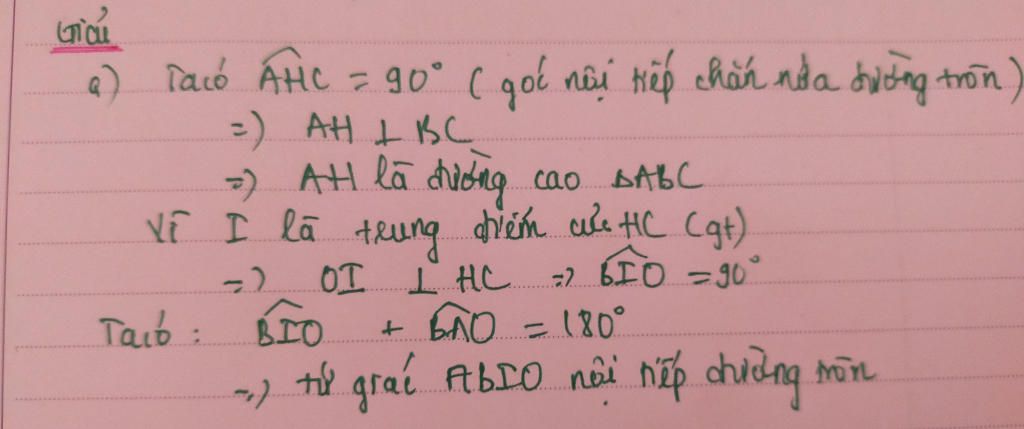 Giải
a) Ta có AHC = 90° ( góc nội tiếp chắn nửa đường tròn )
=> AH ⊥ BC
=> AH là đường cao ΔABC
Vì I là trung điểm của HC (gt)
=> OI ⊥ HC => BIO = 90°
Ta có : BIO + BAO = 180°
=> tứ giác ABIO nội tiếp đường tròn